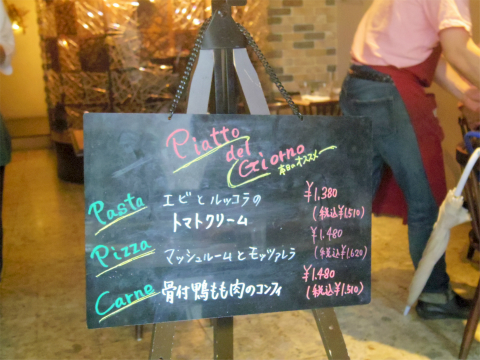 Piatto
del
Giorno
本日のオススメ
Pasta エビとルッコラの ¥1,380
トマトクリーム (税込¥1,510)
Pizza マッシュルームとモッツァレラ ¥1,480
(税込¥1,620)
Carne 骨付鴨もも肉のコンフィ ¥1,480
(税込¥1,510)